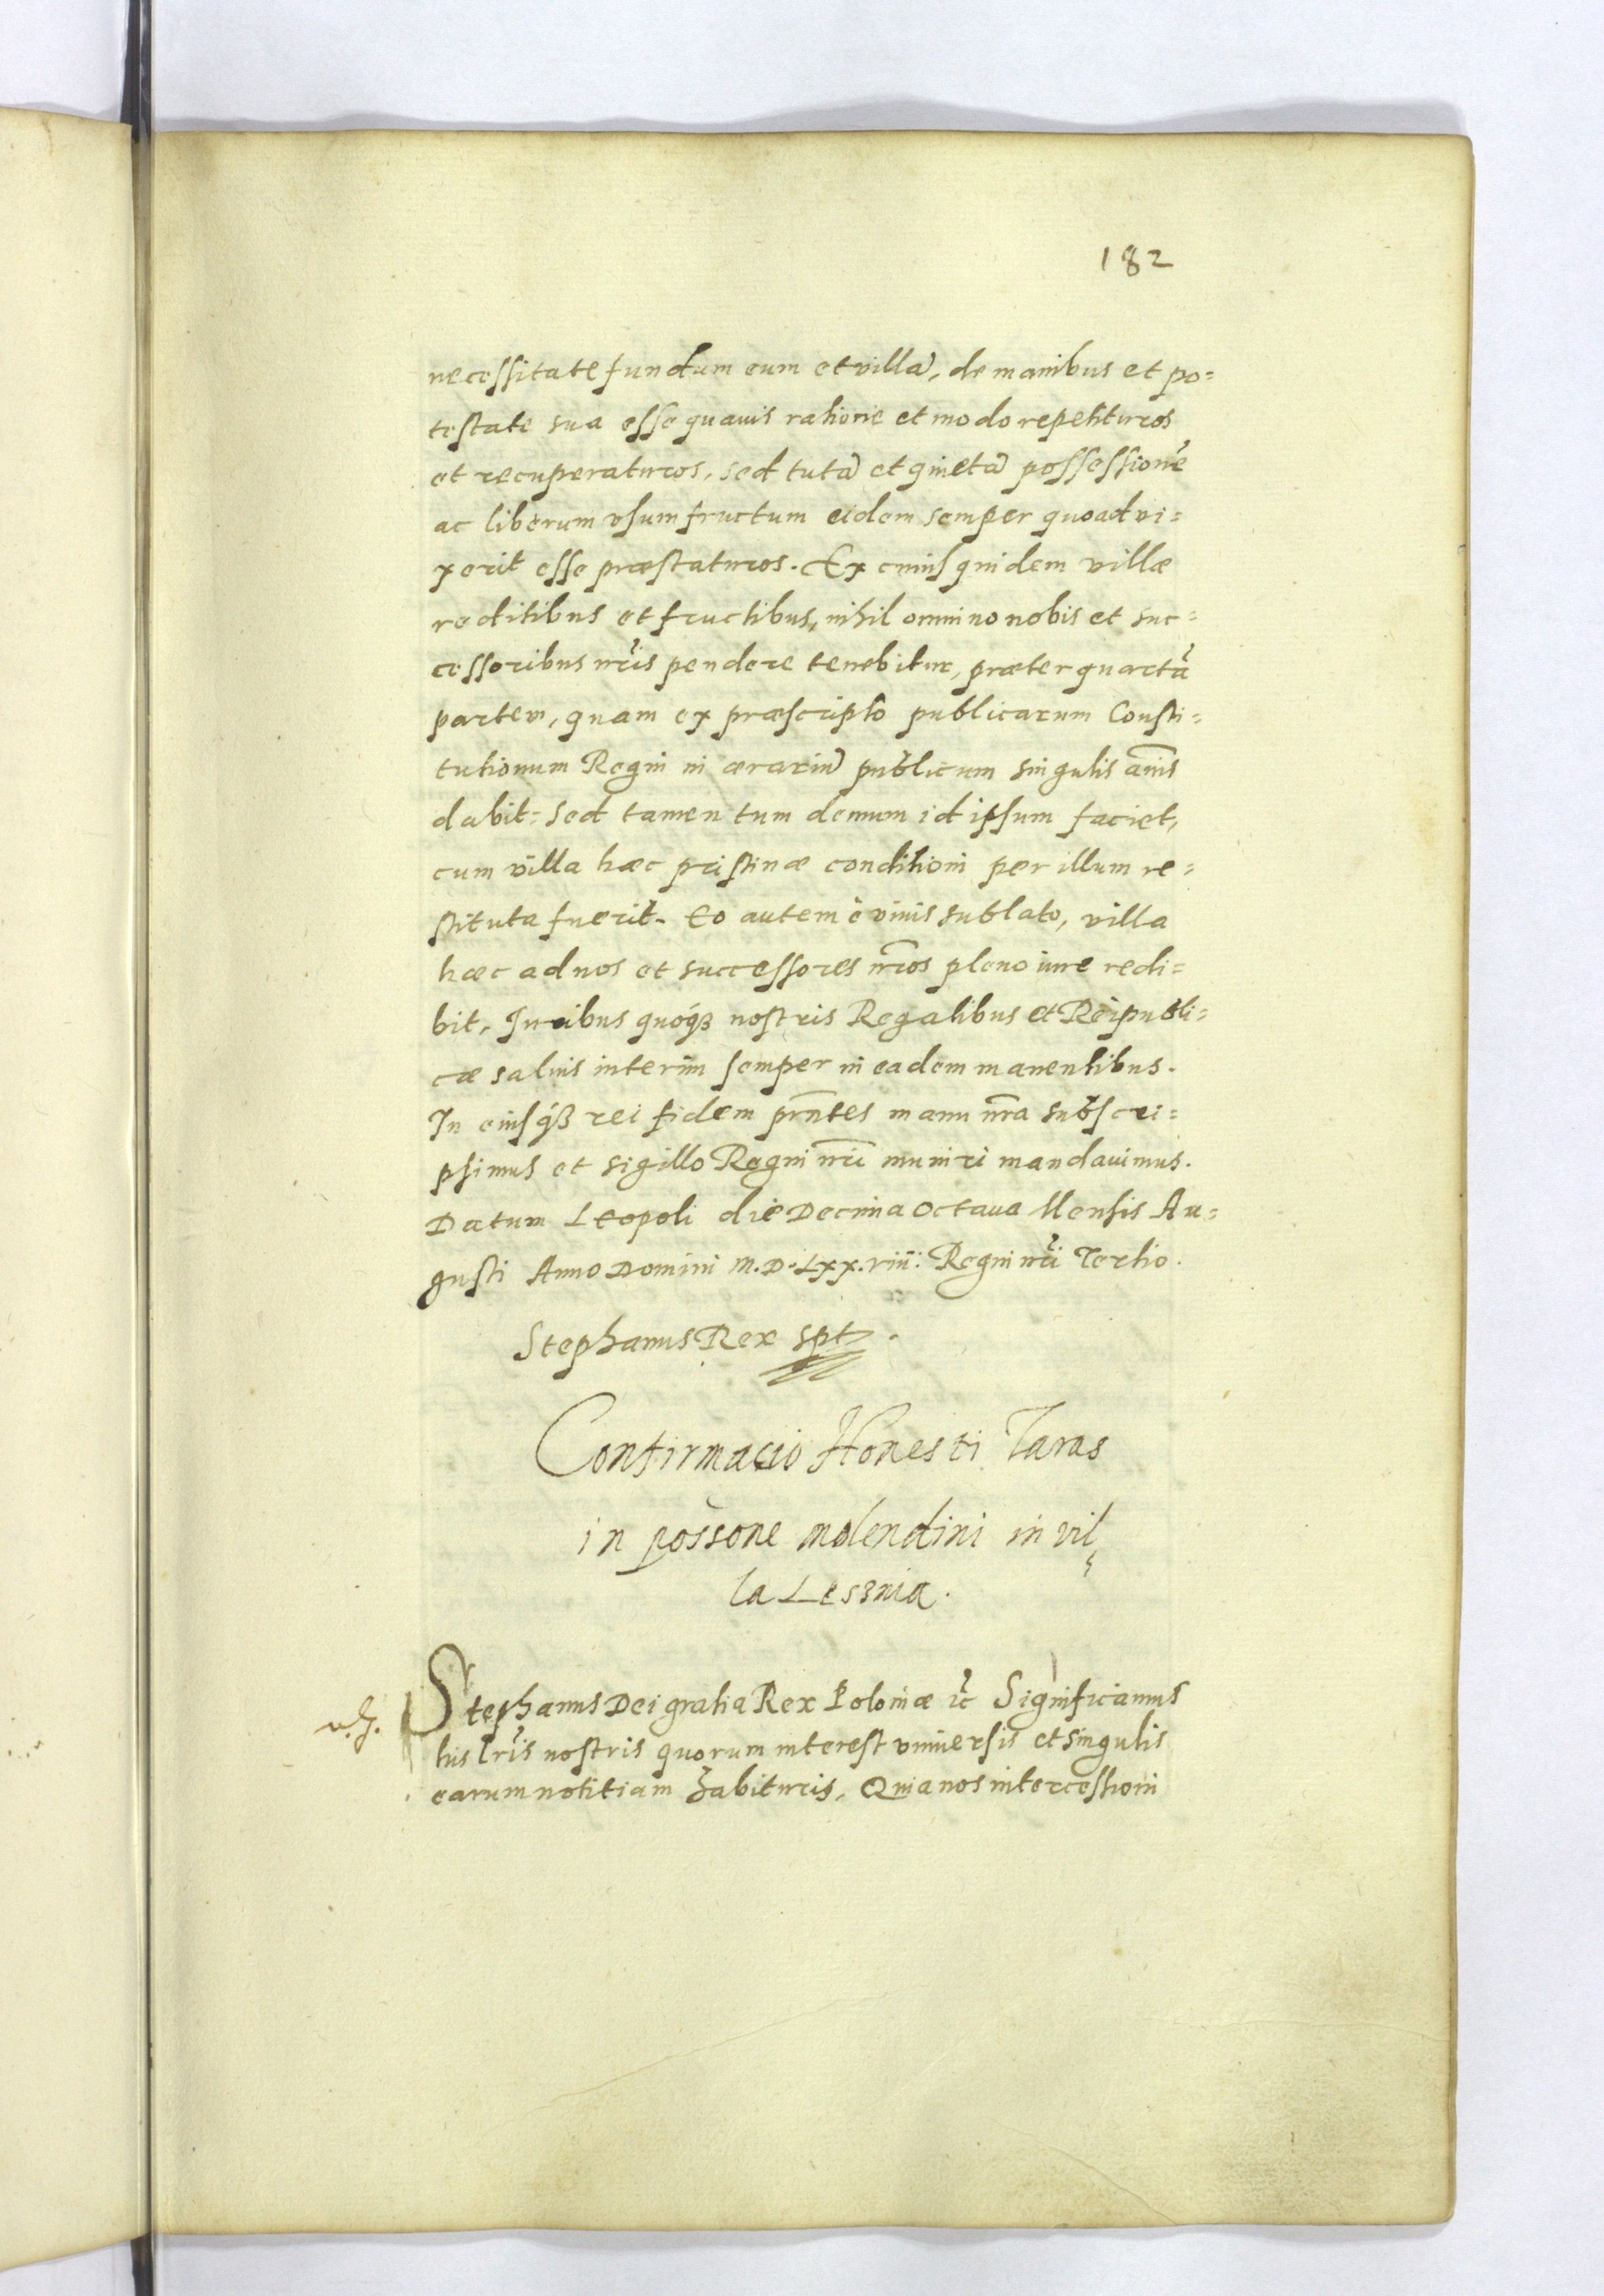 182
necessitate fundum eum et villã, de manibus et po=
testate sua esse quauis ratione et modo repetituros
et recuperaturos, sed tutã et quietã possessionẽ
ac liberum vsumfructum eidem semper quoad vi=
xerit esse præstaturos. Ex cuius quidem villæ
reditibus et fructibus, nihil omnino nobis et suc=
cessoribus nr̃is pendere tenebitur, præter quartã
partem, quam ex præscripto publicarum Consti=
tutionum Regni in ærariũ publicum singulis annis
dabit: sed tamen tum demum id ipsum faciet,
cum villa hæc pristinæ conditioni per illum re=
stituta fuerit. Eo autem è viuis sublato, villa
hæc ad nos et successores nr̃os pleno iure redi=
bit, Iuribus quoqȝ nostris Regalibus et Reipubli=
cæ saluis interim semper in eadem manentibus.
In eiusqȝ rei fidem prñtes manu nr̃a subscri=
psimus et sigillo Regni nr̃i muniri mandauimus.
Datum Leopoli die Decima Octaua Mensis Au=
gusti Anno Domini M.D.LXX.viii: Regni nr̃i Tertio.
Stephanus Rex spt
Confirmacio Honesti Taras
in possone molendini in vil
la Lesznia.
Stephanus Dei gratia Rex Poloniæ ic̃ Significamus
his lr̃is nostris quorum interest vniuersis et singulis
earum notitiam habituris, Quia nos intercessioni